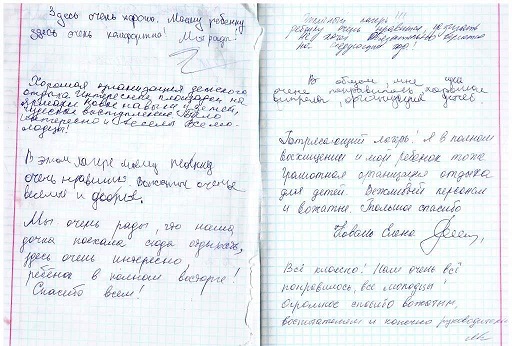 Здесь очень хорошо. Моему ребенку
здесь очень комфортно! Мы рады!
Хорошая организация детского
отдыха. Интересные площадки на
ярмарки новые навыки у детей,
выступление. Было
интересно и весело. Все мо-
лодцы!
В этом лагере моему ребенку
очень нравится. Вожатые очень
веселые и добрые.
Мы очень рады, что наша
дочка поехала сюда отдыхать,
здесь очень интересно,
ребенок в полном восторге!
Спасибо всем!
лагерь!!!
ребёнку очень нравится,
на следующий год!
В общем, мне
очень понравилось, хорошие
организация детей
Потрясающий лагерь! Я в полном
восхищении и мой ребенок тоже
Грамотная организация отдыха
для детей. Вежливый персонал
и вожатые. Большое спасибо
Коваль Елена
Всё классно! Нам очень всё
понравилось, все молодцы!
Огромное спасибо вожатым,
воспитателям и конечно руководителям